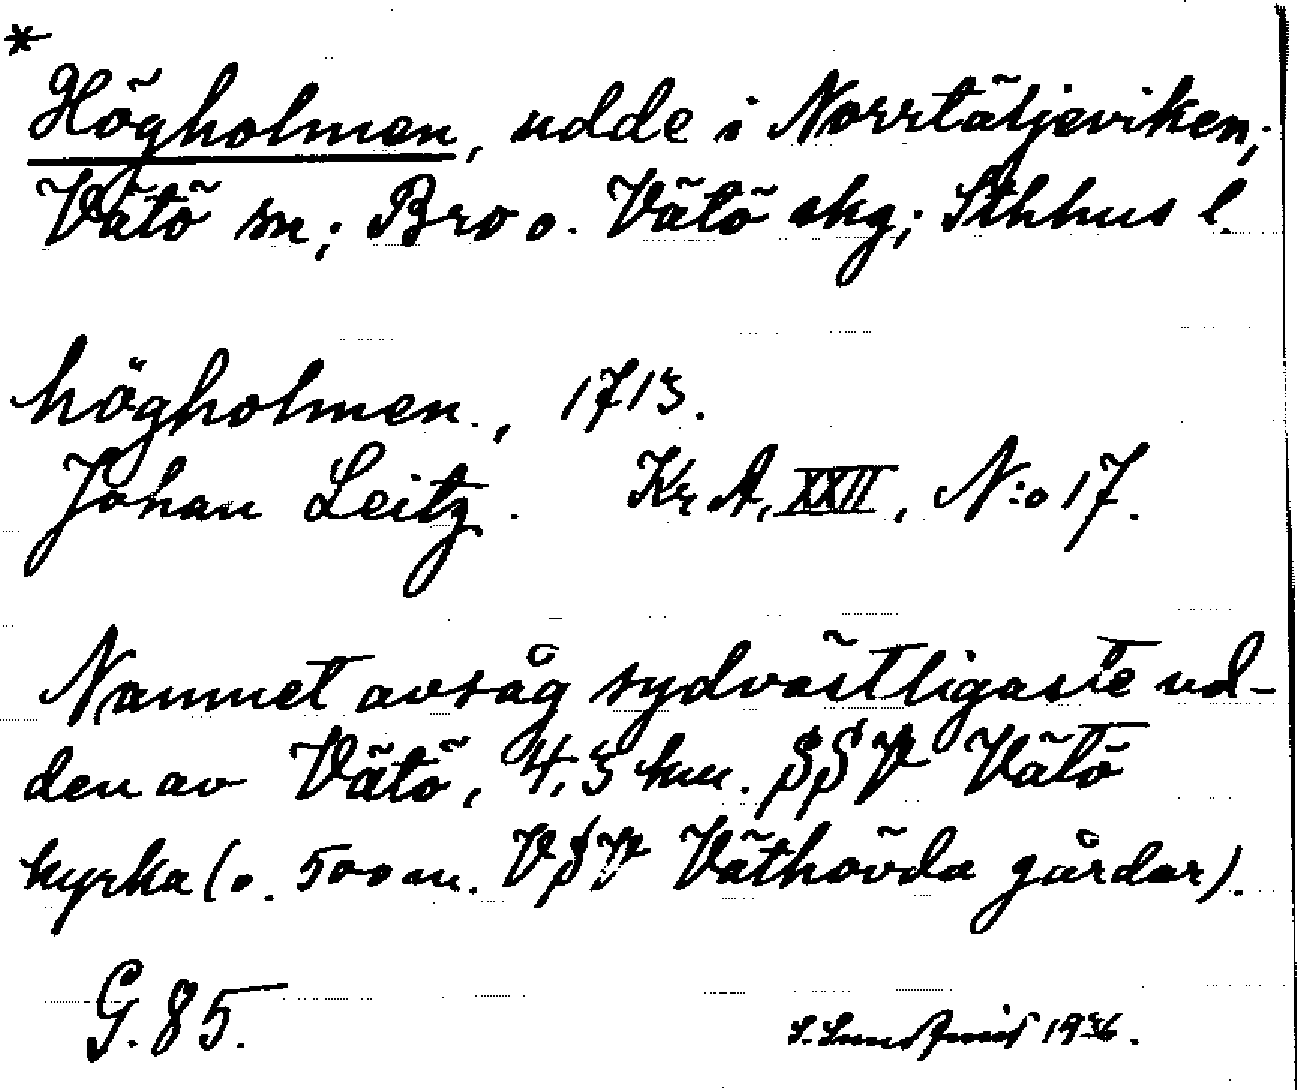 *
Högholmen, udde i Norrtäljeviken;
Vätö sn; Bro o. Vätö skg; Sthhus l.
högholmen., 1713.
Johan Leitz. Kr A, XXII, N:o 17.
Namnet avsåg sydvästligaste ud-
den av Vätö, 4,5 km. SSV Vätö
kyrka (o. 500 m. VSV Väthövda gårdar).
G. 85.
S. Lundqvist 1936.